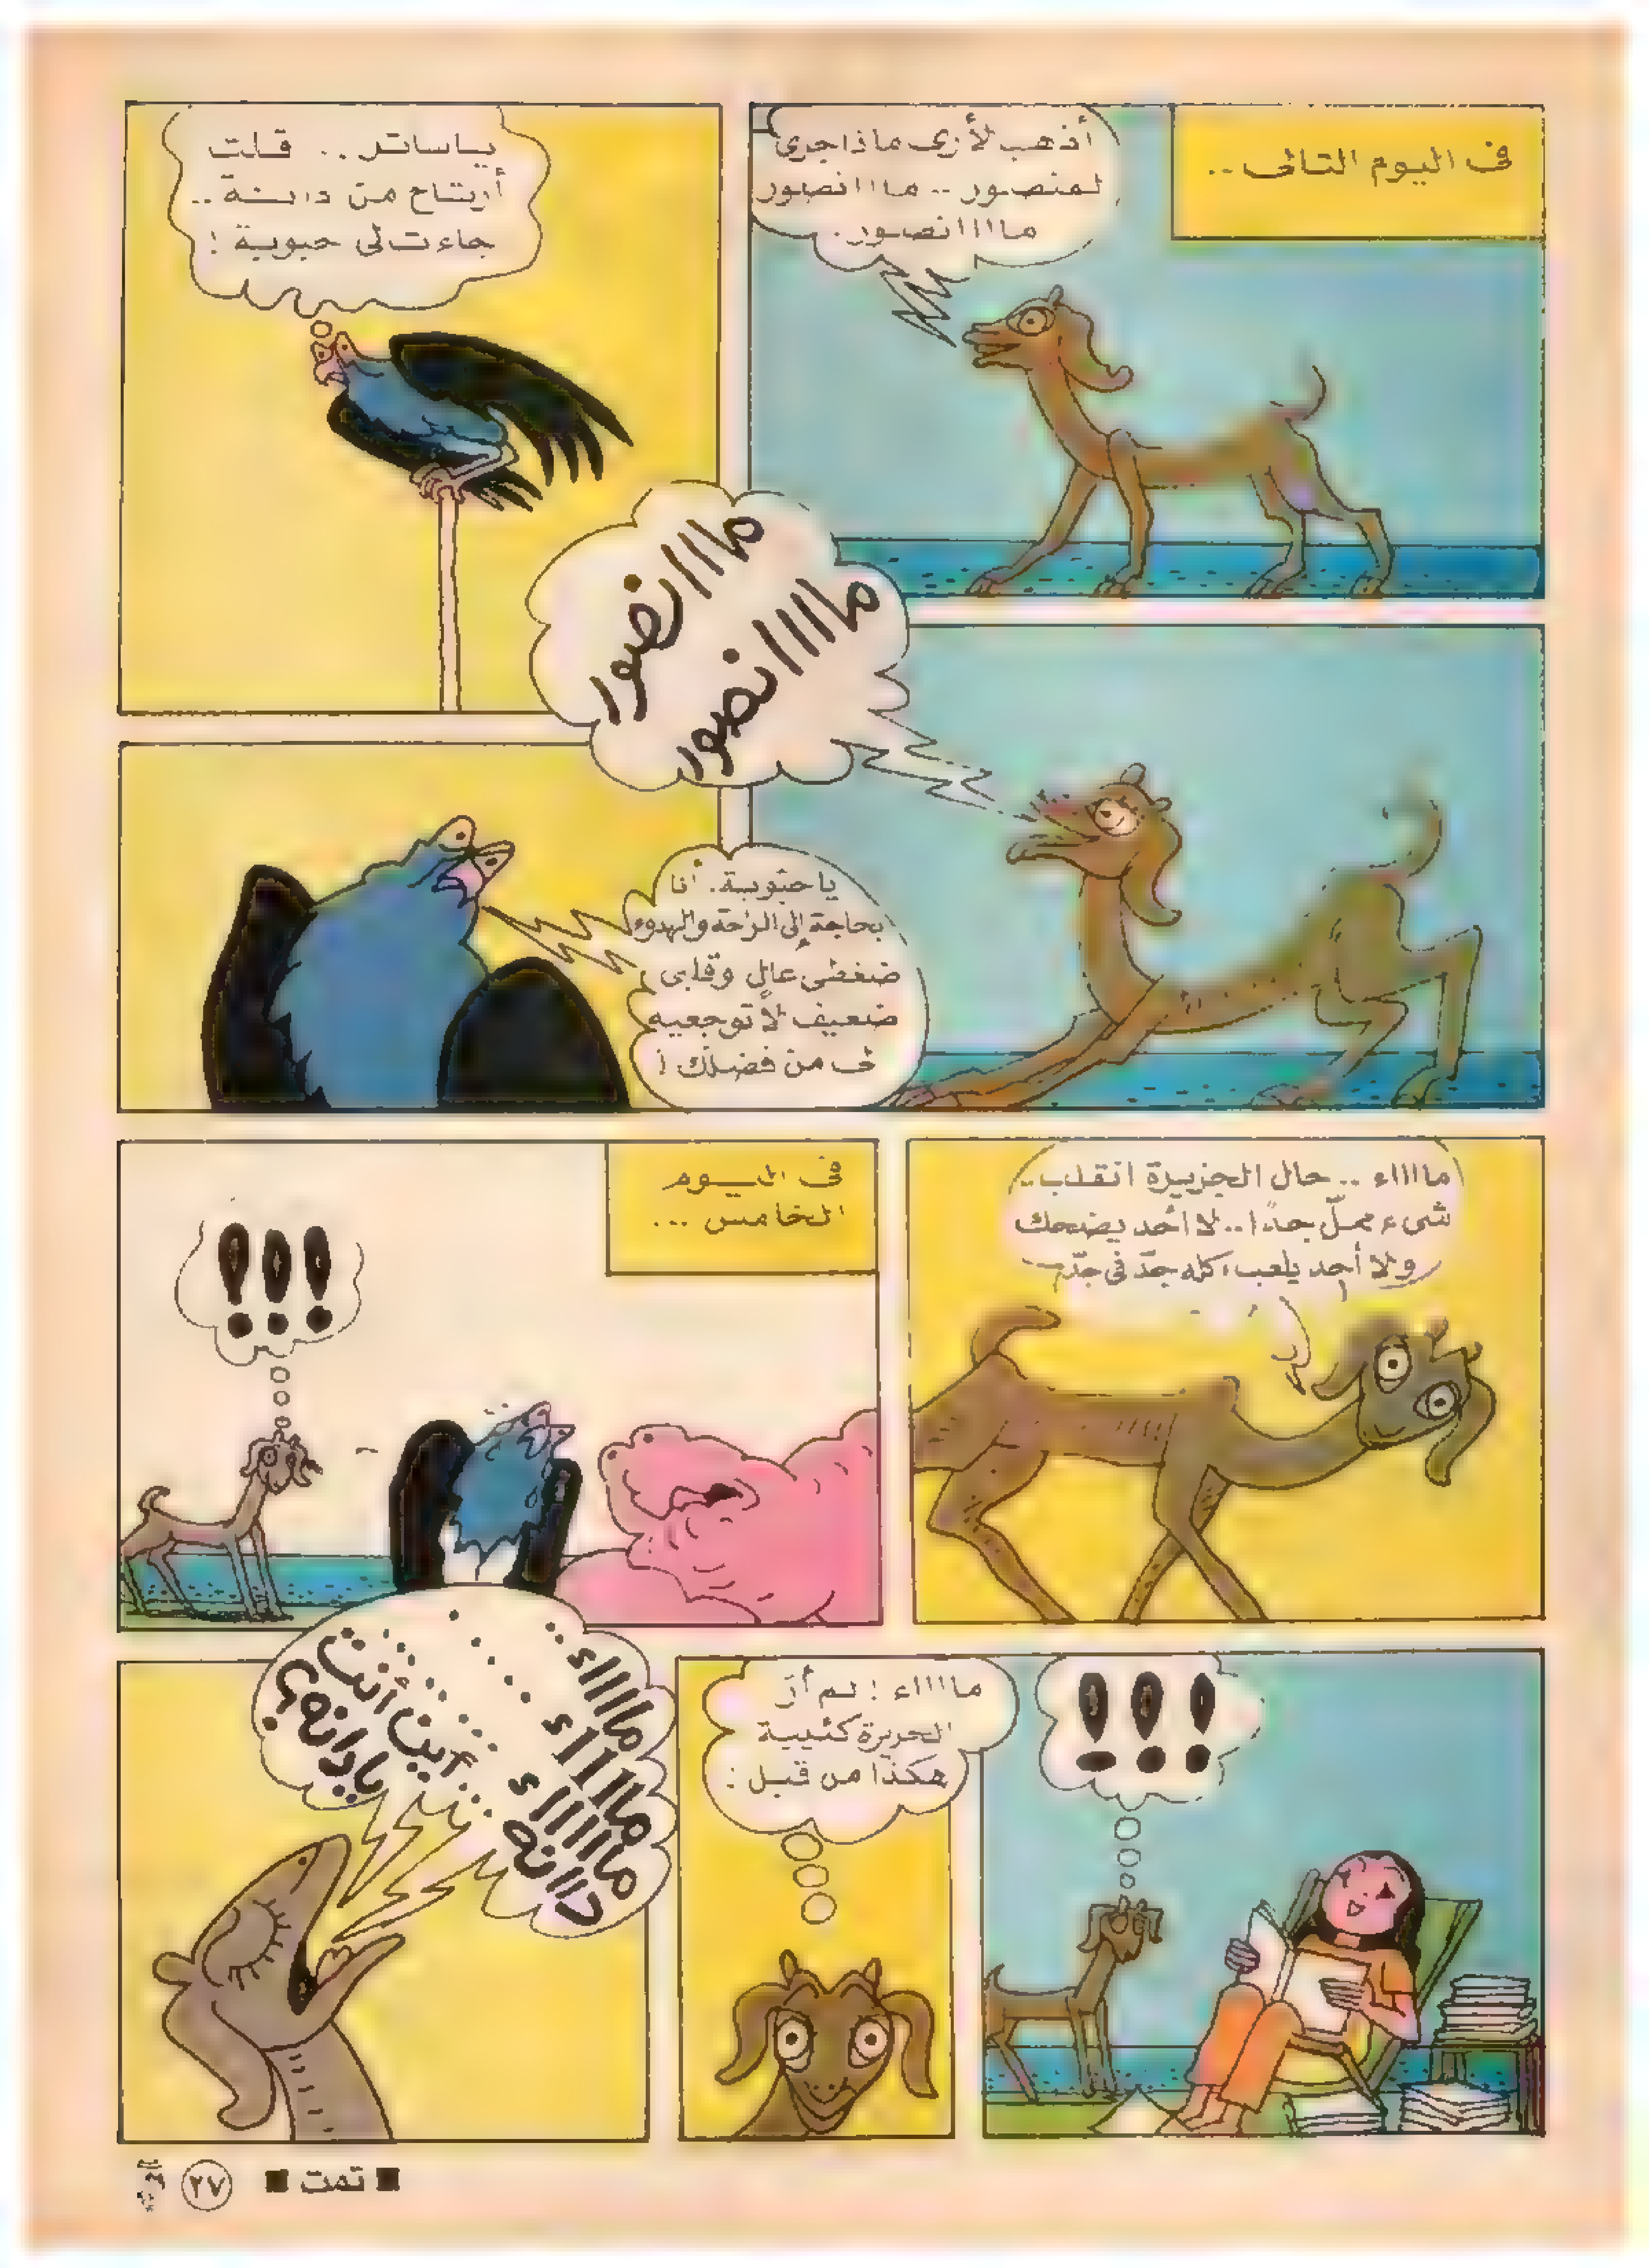 فى اليوم التالى ..
أذهب لأرى ماذا جرى
لمنصور .. مااانصور
ماااانصور.
ياساتر .. قلت
أرتاح من دانة ..
جاءت لى حبوبة !
مااانصور
ماااانصور
يا حبّوبة. أنا
بحاجة إلى الراحة والهدوء
ضغطى عالٍ وقلبى
ضعيف لا توجعيه
لى من فضلك !
مااااء .. حال الجزيرة انقلب ..
شىء مملّ جداً .. لا أحد يضحك
ولا أحد يلعب، كله جدّ فى جدّ
فى اليوم
الخامس ...
!!!
!!!
مااااء ! لم أرَ
الجزيرة كئيبة
هكذا من قبل !
مااااء ..
مااااء ....
ماااااء
دانه
أين أنت
يادانه؟
■ تمت ■
٢٧